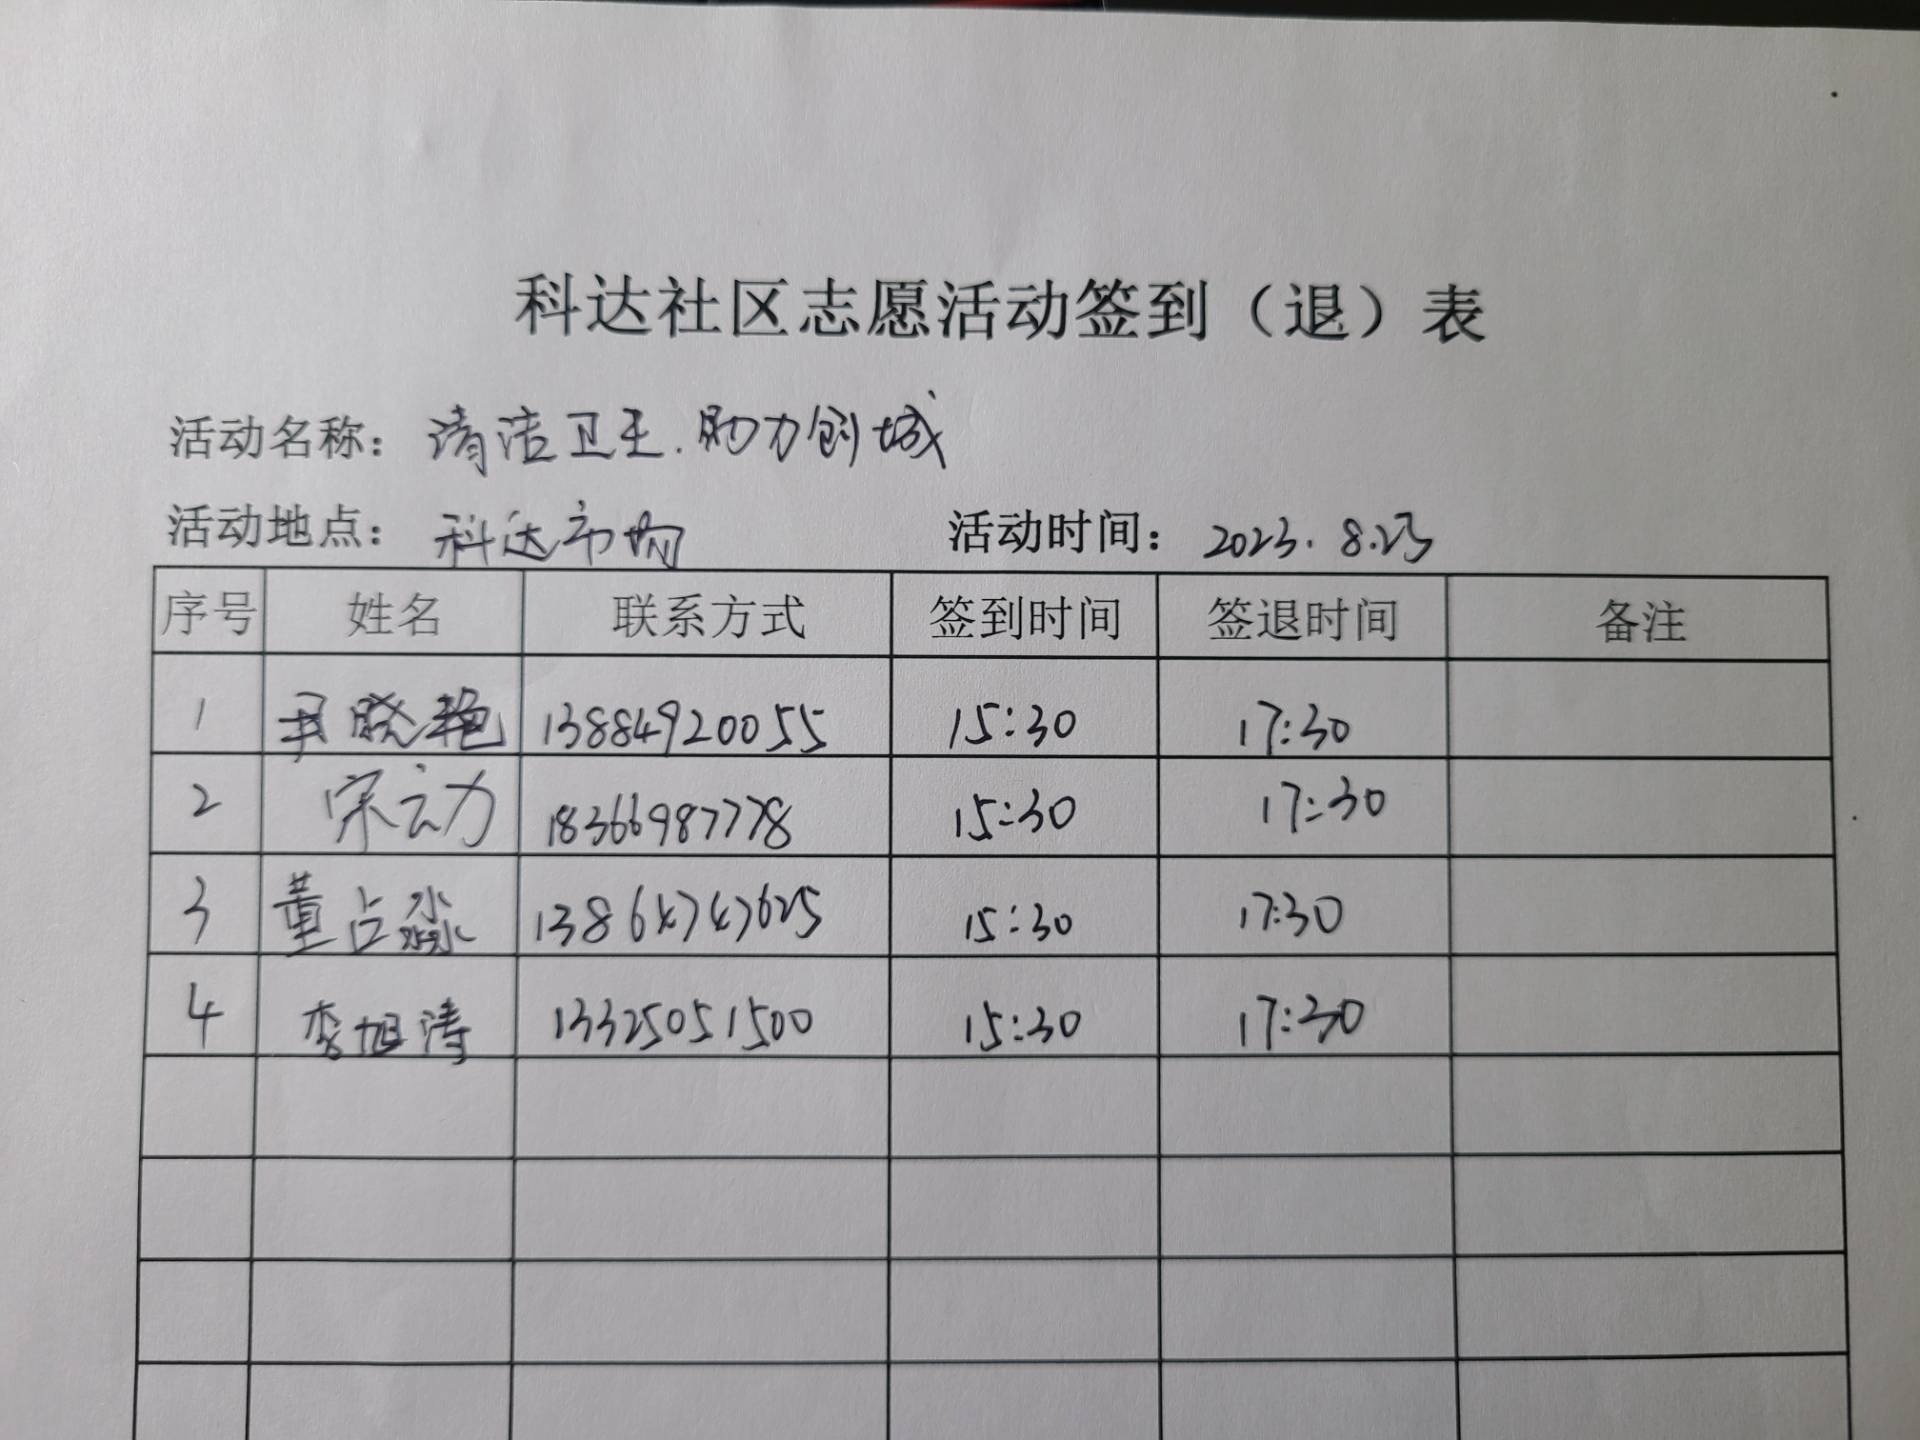 科达社区志愿活动签到（退）表
活动名称：清洁卫生.助力创城
活动地点：科达市场 活动时间：2023.8.23
序号 姓名 联系方式 签到时间 签退时间 备注
1 尹晓艳 13884920055 15:30 17:30
2 宋云力 18366987778 15:30 17:30
3 董占淼 13864747625 15:30 17:30
4 李旭涛 13325051500 15:30 17:30